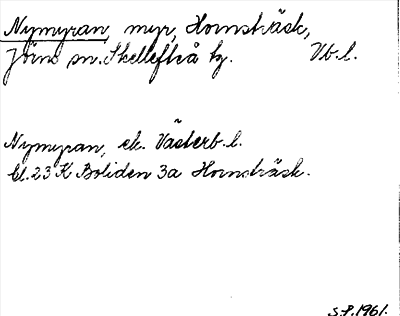 Nymyran, myr, Hornsträsk,
Jörns sn. Skellefteå kg. Vb.l.
Nymyran, ek. Västerb.l.
Bl. 23 K Boliden 3a Hornsträsk.
S.P. 1961.